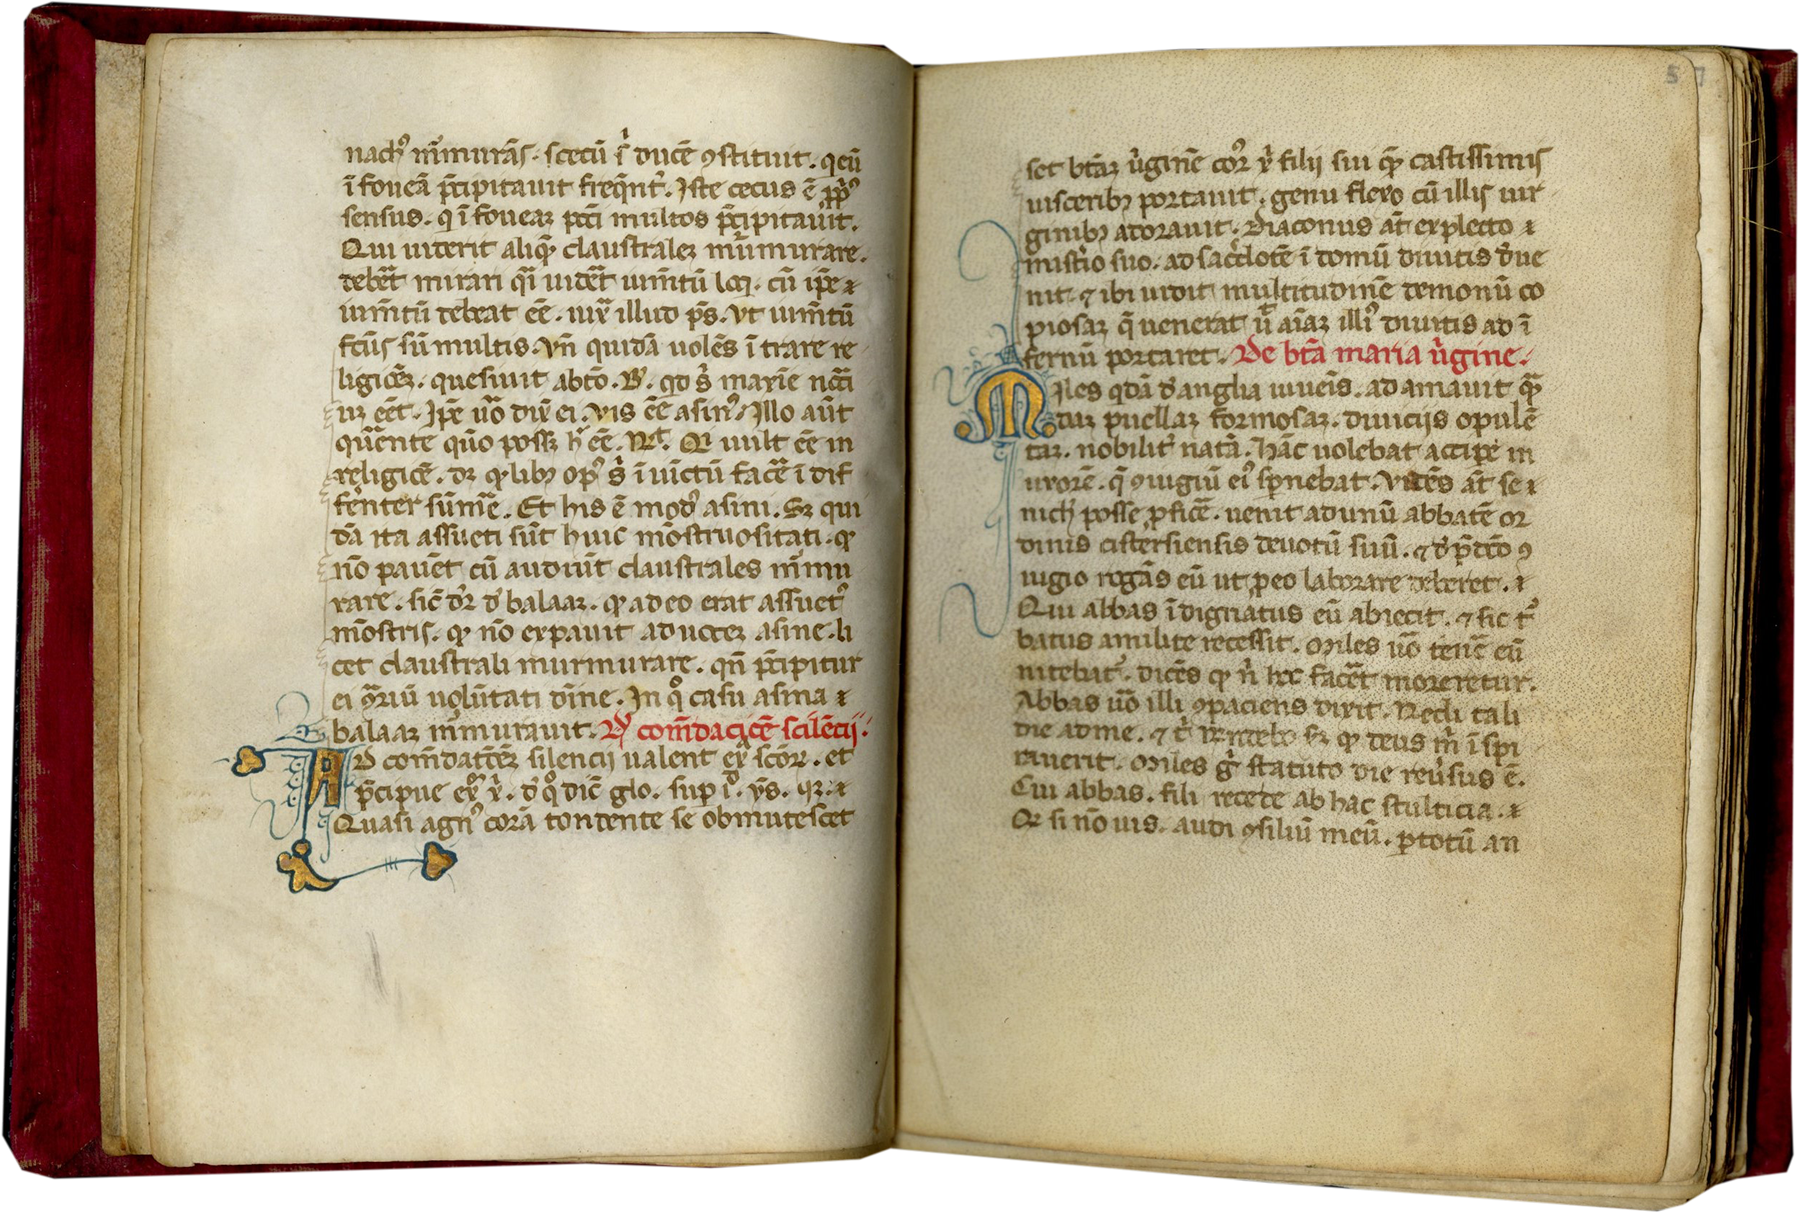 nachꝰ m̄murās. scectū ı̄ ducē ꝯstituit. q cū
ī foueā p̄cipitauit freq̄nt͛. Iste cecus ē ꝓpͥꝰ
sensus. q ī foueaꝫ pcc̄i multos p̄cipitauit.
Qui uiderit aliqͣꝫ claustraleꝫ murmurare.
debet mirari qͣi uidet̄ uim̄tū loq. cū ip̄e ⁊
ium̄tū debeat eē. iux̄ illud ps̄. Vt ium̄tū
fc̄us sū multis. Vn̄ quidā uolēs ītrare re
ligiōeꝫ. quesiuit ab
uꝫ eēt. Ip̄e uͦo dix̄ ei. Vis eē asinꝰ? Illo aūt
quēente quō possꝫ hͨ eē. Rͩt. Qr uult eē in
religiōe. dꝫ qͦ libꝫ opꝰ ī uictū facē ī dif
ferenter sūme. Et his ē modꝰ asini. Sꝫ qui
dā ita assueti sūt huic mōstruositati. ꝙ
nō pauēt cū audiūt claustrales m̄mu
rare. sic̄ dr̄ đ balaaꝫ. ꝙ adeo erat assuetꝰ
mōstris. ꝙ nō expauit ad uoceꝫ asine. li
cet claustrali murmurare. qn̄ p̄cipitur
ei ꝯͣriū uolūtati dīne. In qͦ casu asina ⁊
balaaꝫ m̄murauit. Ad com̄dacōeꝫ scilēcij.
AD com̄datōeꝫ silencij ualent ex̄ scōꝝ. et
p̄cipue ex̄ x̄. đ qͦ dic̄ glo. sup i. ys. ⁊
Quasi agnꝰ corā tondente se obmutescet
set btāꝫ ūginē coꝝ x̄ filij sui qͣꝫ castissimis
uisceribꝫ portauit. genu flexo cū illis uir
ginibꝫ adorauit. Diaconus āt expleto ⁊
mist̄io suo. ad sac̄dotē ī domū diuitis đue
nit. ⁊ ibi uidit multitudinē demonū co
piosaꝫ q̄ uenerat ut aīaꝫ illiꝰ diuitis ad ī
fernū portaret. De btā maria ūgine.
Miles qdā đ anglia iuueīs. adamauit qͣꝫ
daꝫ puellaꝫ formosaꝫ. diuicijs opulē
taꝫ. nobilit͛ natā. Hāc uolebat accipe in
uxorē. q̄ ꝯiugiū eiꝰ sp̄nebat. Vidēs āt se ⁊
nichꝉ posse ꝓficē. uenit ad unū abbatē or
dinis cistersiensis deuotū suū. ⁊ đ p̄dc̄o ꝯ
iugio rogās eū ut p eo laborare deberet. ⁊
Qui abbas īdignatus eū abiecit. ⁊ sic tͥ
batus a milite recessit. Miles uō tenē eū
nitebat͛. dicēs ꝙ n̄ hec facēt moreretur.
Abbas uō illi ꝯpaciens dixit. Redi tali
die ad me. ⁊ t̄ respōdebo sꝫ ꝙ deus m̄ īspi
rauerit. Miles gͦ statuto die reūsus ē.
Cui abbas. fili recede ab hac stulticia. ⁊
Qr si nō uis. audi ꝯsiliū meū. ꝑ totū an